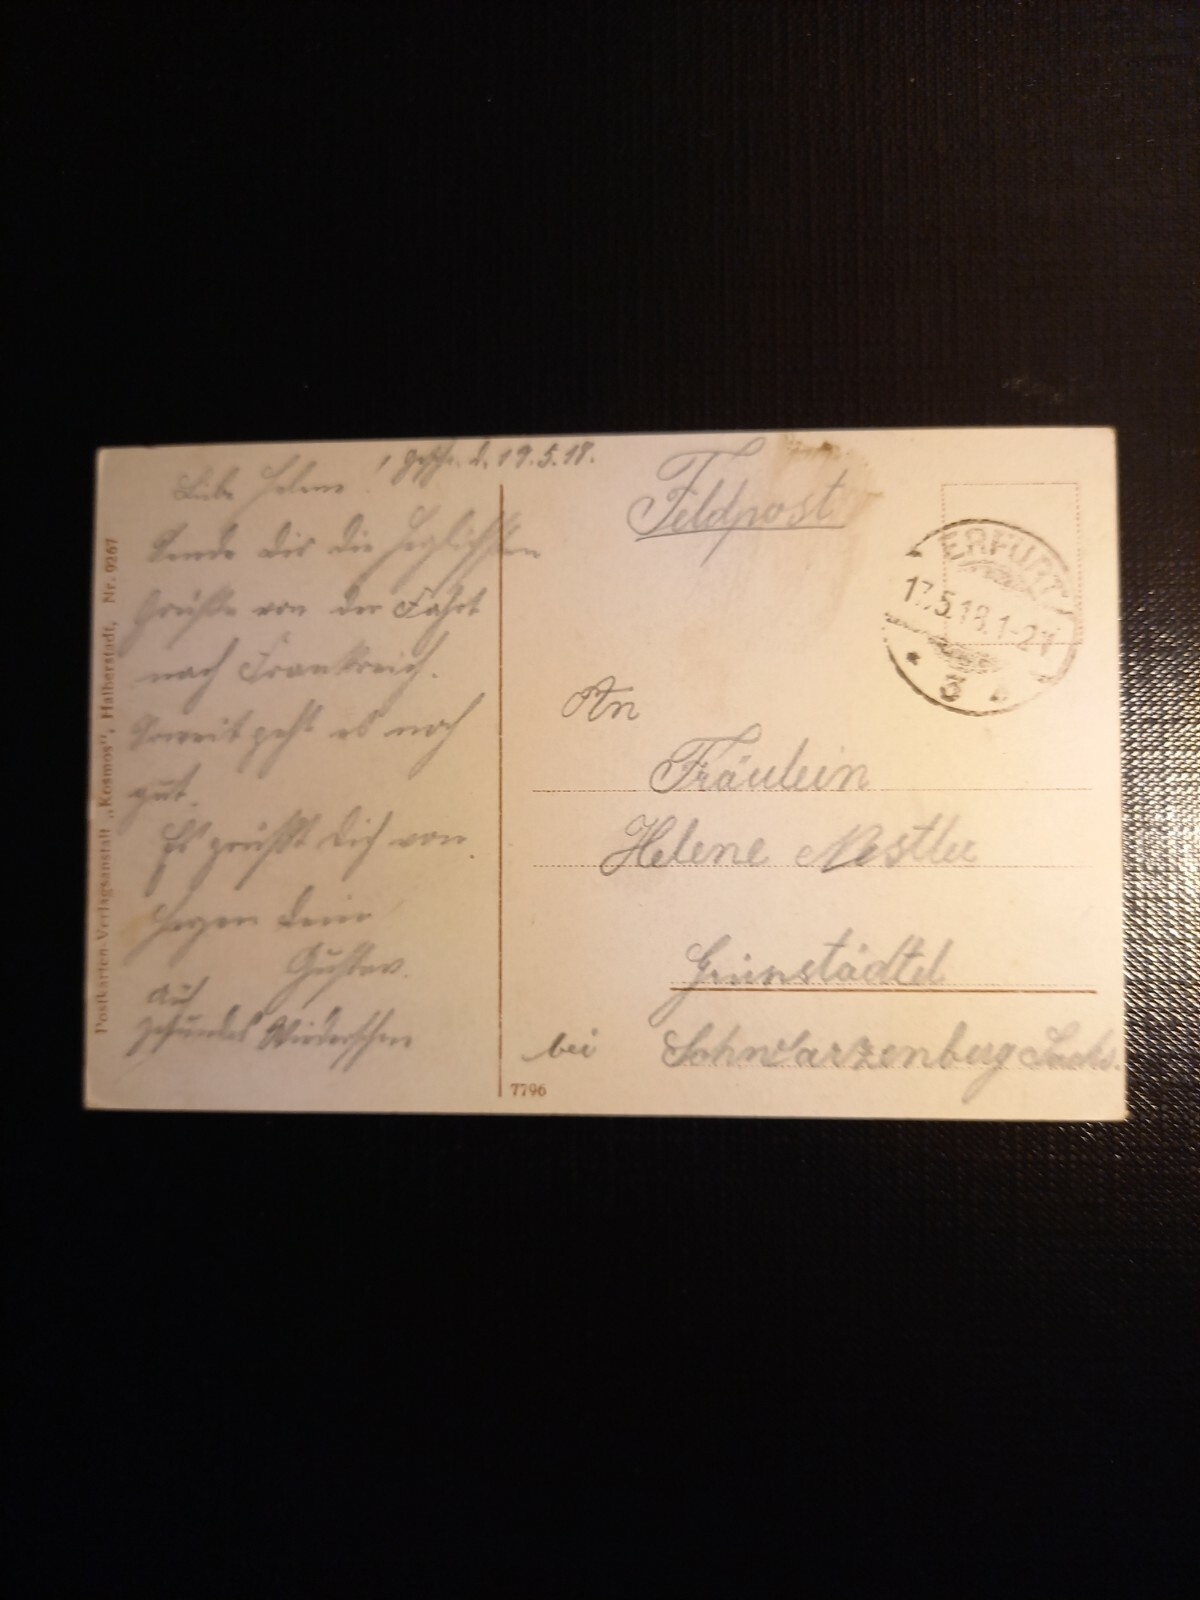 Liebe Helene!
Geschr. d. 19.5.18.
Sende dir die herzlichsten
Grüße von der Fahrt
nach Frankreich.
Soweit geht es noch
gut.
Es grüßt Dich von
Herzen dein
Gustav.
Auf
gesundes Wiedersehen
Postkarten-Verlagsanstalt „Kosmos“, Halberstadt, Nr. 9267
Feldpost
ERFURT
17.5.18.1-2N
* 3
An
Fräulein
Helene Nestler
Grünstädtel
bei Schwarzenberg Sachs.
7796